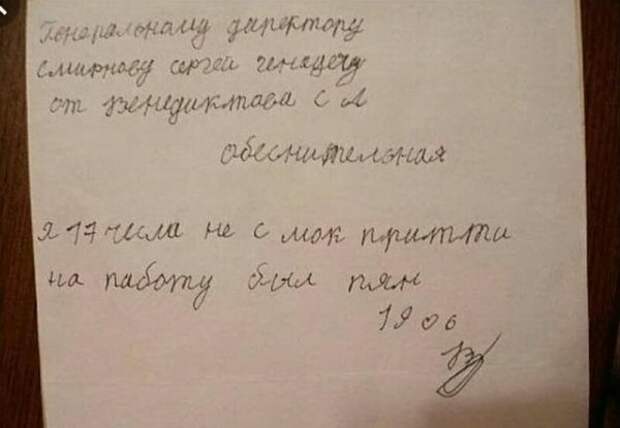 Генеральному директору
смирнову сергей генацечу
от Венедиктова С А
обеснительная
я 17 чесла не с мок притти
на работу был пян
19 06